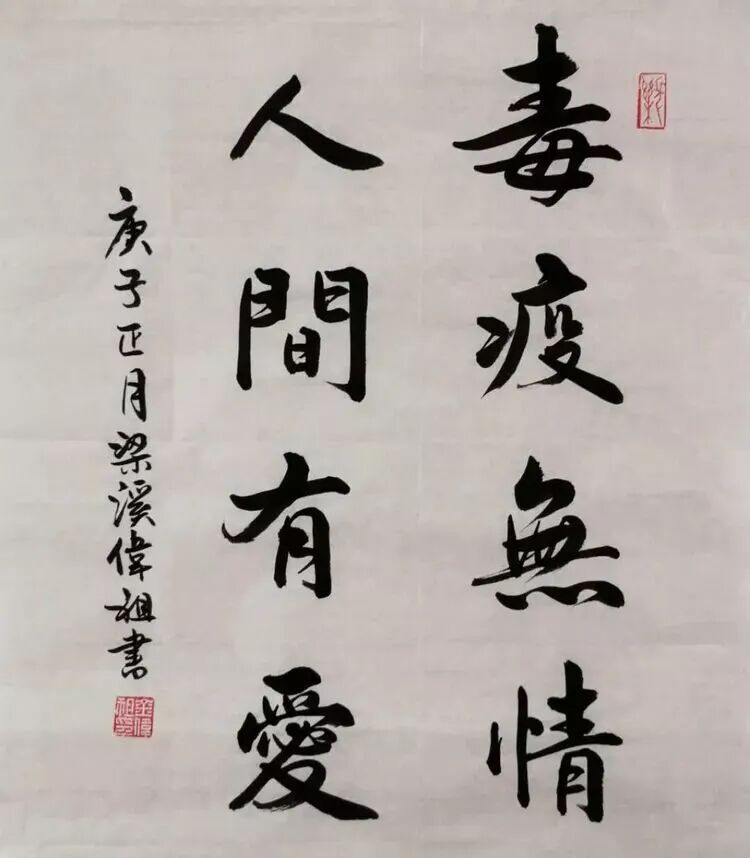 毒疫無情
人間有愛
庚子正月梁溪偉祖書